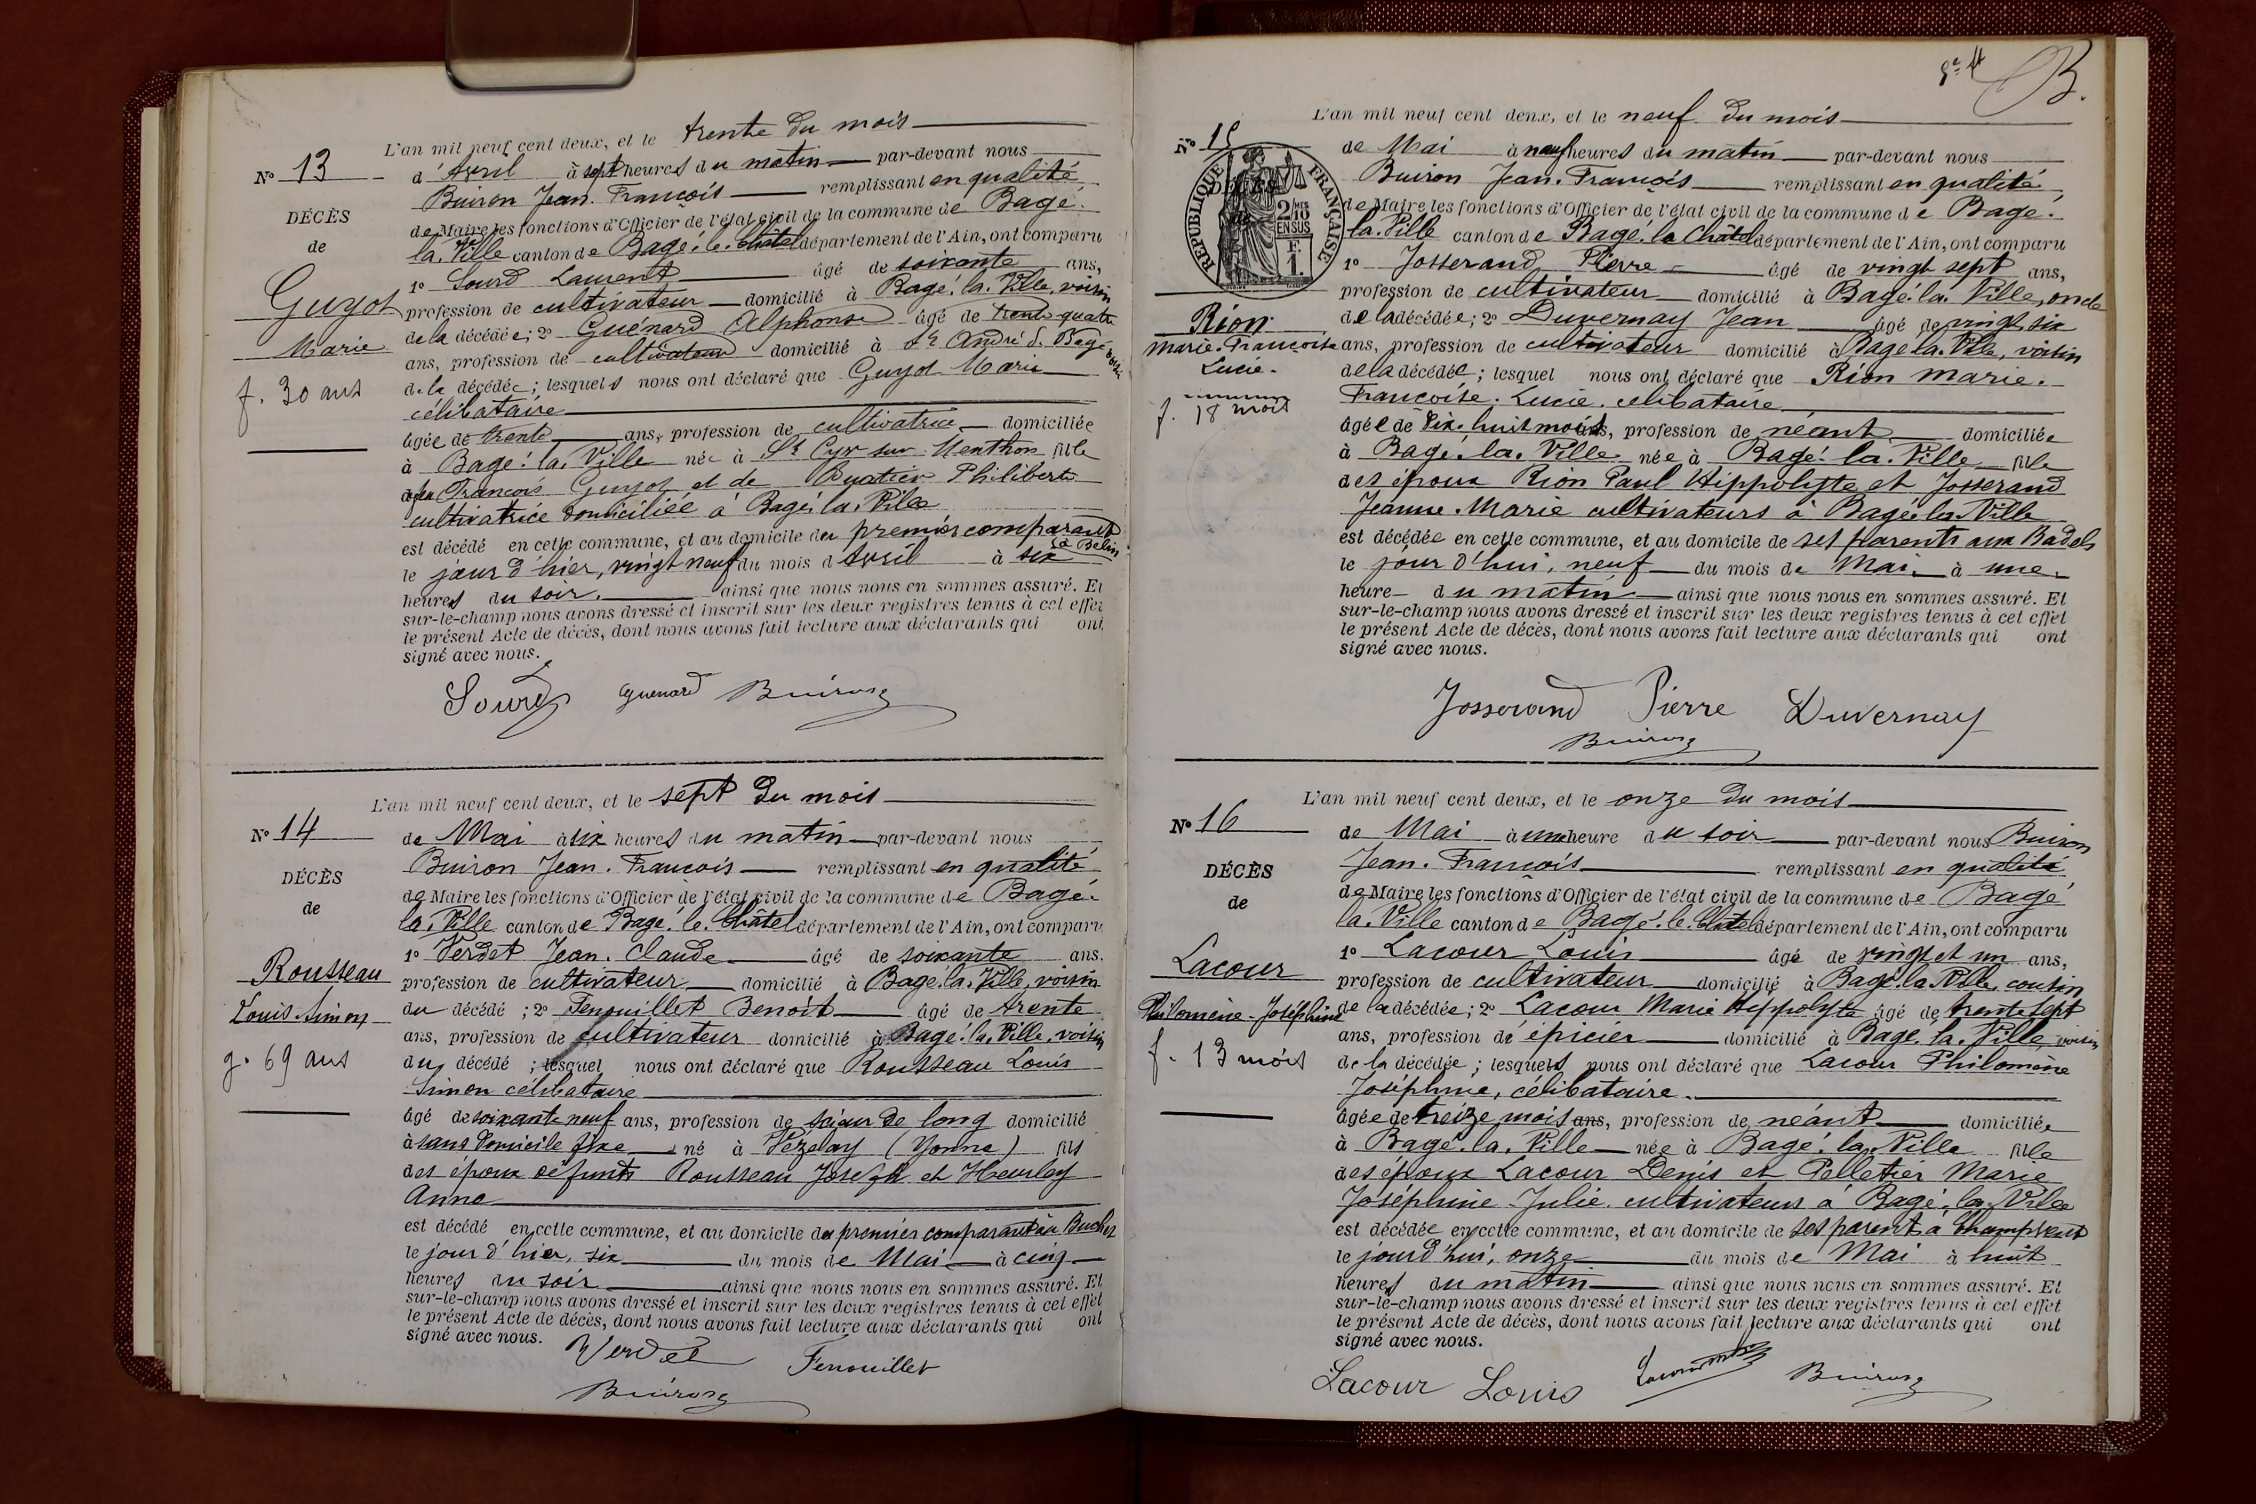 L'an mil neuf cent deux, et le trente du mois
No 13
d'Avril à sept heures du matin par-devant nous
Buiron Jean. François remplissant en qualité
DÉCÈS
de Maire les fonctions d'Officier de l'état civil de la commune de Bagé.
de
la. Ville canton de Bagé. le. Châtel département de l'Ain, ont comparu
1º Sourd Laurent âgé de soixante ans,
Guyot
profession de cultivateur domicilié à Bagé. la. Ville, voisin
de la décédée; 2º Guénard Alphonse âgé de trente quatre
Marie
ans, profession de cultivateur domicilié à St André d. Bagé
f. 30 ans
de la décédée; lesquels nous ont déclaré que Guyot Marie
célibataire
âgée de trente ans, profession de cultivatrice domiciliée
à Bagé. la. Ville née à St Cyr sur Menthon fille
François Guyot et de Philiberte
cultivatrice domiciliée à Bagé. la. Ville
est décédé en cette commune, et au domicile du premier comparant
le jour d'hier, vingt neuf du mois d'Avril à six
heures du soir. ainsi que nous nous en sommes assuré. Et
sur-le-champ nous avons dressé et inscrit sur les deux registres tenus à cet effet
le présent Acte de décès, dont nous avons fait lecture aux déclarants qui ont
signé avec nous.
Sourd Guenard Buiron
L'an mil neuf cent deux, et le sept du mois
No 14
de Mai à six heures du matin par-devant nous
Buiron Jean. François remplissant en qualité
DÉCÈS
de Maire les fonctions d'Officier de l'état civil de la commune de Bagé.
de
la. Ville canton de Bagé. le. Châtel département de l'Ain, ont comparu
1º Verdet Jean. Claude âgé de soixante ans.
Rousseau
profession de cultivateur domicilié à Bagé. la. Ville, voisin
Louis. Simon
du décédé; 2º Fenouillet Benoit âgé de trente
ans, profession de cultivateur domicilié à Bagé. la. Ville, voisin
g. 69 ans
du décédé; lesquel nous ont déclaré que Rousseau Louis
Simon célibataire
âgé de soixante neuf ans, profession de scieur de long domicilié
à sans domicile fixe né à Vézelay (Yonne) fils
des époux défunts Rousseau Joseph et Heurley
Anne
est décédé en cette commune, et au domicile du premier comparant
le jour d'hier, six du mois de Mai à cinq
heures du soir ainsi que nous nous en sommes assuré. Et
sur-le-champ nous avons dressé et inscrit sur les deux registres tenus à cet effet
le présent Acte de décès, dont nous avons fait lecture aux déclarants qui ont
signé avec nous.
Verdet Fenouillet
Buiron
B.
L'an mil neuf cent deux, et le neuf du mois
No 15
de Mai à neuf heures du matin par-devant nous
Buiron Jean. François remplissant en qualité
RÉPUBLIQUE FRANÇAISE
DÉCÈS
2/10 EN SUS
F. 1.
de Maire les fonctions d'Officier de l'état civil de la commune de Bagé.
la. Ville canton de Bagé. le Châtel département de l'Ain, ont comparu
1º Josserand Pierre âgé de vingt sept ans,
profession de cultivateur domicilié à Bagé. la. Ville, oncle
Rion
de la décédée; 2º Duvernay Jean âgé de vingt six
Marie. Françoise
ans, profession de cultivateur domicilié à Bagé la. Ville, voisin
Lucie.
de la décédée; lesquel nous ont déclaré que Rion Marie.
f. 18 mois
Françoise. Lucie. célibataire
âgée de dix. huit mois ans, profession de néant domiciliée
à Bagé. la. Ville née à Bagé. la. Ville fille
des époux Rion Paul Hippolyte et Josserand
Jeanne. Marie cultivateurs à Bagé. la. Ville
est décédée en cette commune, et au domicile de ses parents aux Badels
le jour d'hui, neuf du mois de Mai à une
heure du matin ainsi que nous nous en sommes assuré. Et
sur-le-champ nous avons dressé et inscrit sur les deux registres tenus à cet effet
le présent Acte de décès, dont nous avons fait lecture aux déclarants qui ont
signé avec nous.
Josserand Pierre Duvernay
Buiron
L'an mil neuf cent deux, et le onze du mois
No 16
de Mai à une heure du soir par-devant nous Buiron
Jean. François remplissant en qualité
DÉCÈS
de Maire les fonctions d'Officier de l'état civil de la commune de Bagé
de
la. Ville canton de Bagé. le. Châtel département de l'Ain, ont comparu
1º Lacour Louis âgé de vingt et un ans,
Lacour
profession de cultivateur domicilié à Bagé. la Ville, cousin
Philomène-Joséphine
de la décédée; 2º Lacour Marie Hippolyte âgé de trente sept
ans, profession d'épicier domicilié à Bagé. la. Ville, voisin
f. 13 mois
de la décédée; lesquels nous ont déclaré que Lacour Philomène
Joséphine, célibataire.
âgée de treize mois ans, profession de néant domiciliée
à Bagé. la. Ville née à Bagé. la. Ville fille
des époux Lacour Denis et Pelletier Marie
Joséphine Julie. cultivateurs à Bagé. la. Ville
est décédée en cette commune, et au domicile de ses parents à Champvent
le jourd'hui, onze du mois de Mai à huit
heures du matin ainsi que nous nous en sommes assuré. Et
sur-le-champ nous avons dressé et inscrit sur les deux registres tenus à cet effet
le présent Acte de décès, dont nous avons fait lecture aux déclarants qui ont
signé avec nous.
Lacour Louis Lacour Buiron